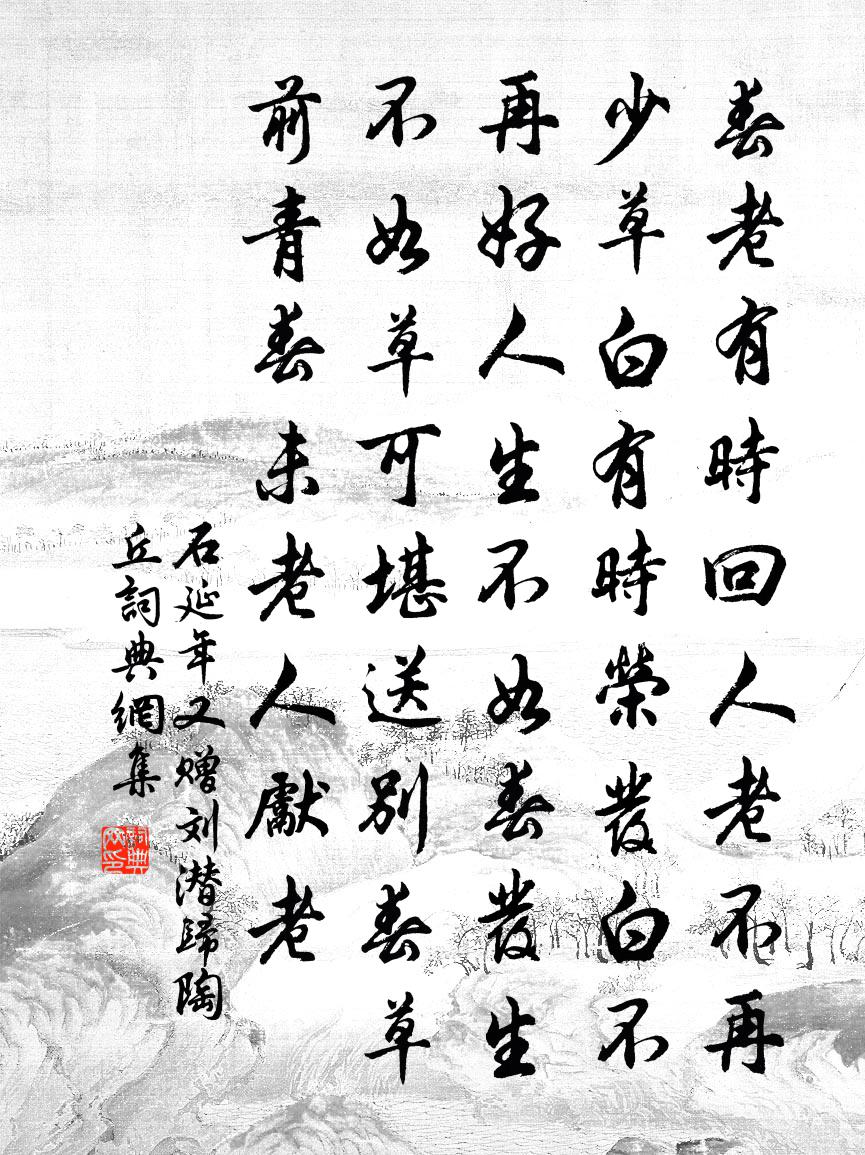 春老有時回人老不再
少草白有時榮發白不
再好人生不如春發生
不如草可堪送別春草
前青春未老人獻老
石延年又贈刘潛歸陶
丘詞典網集
詞典